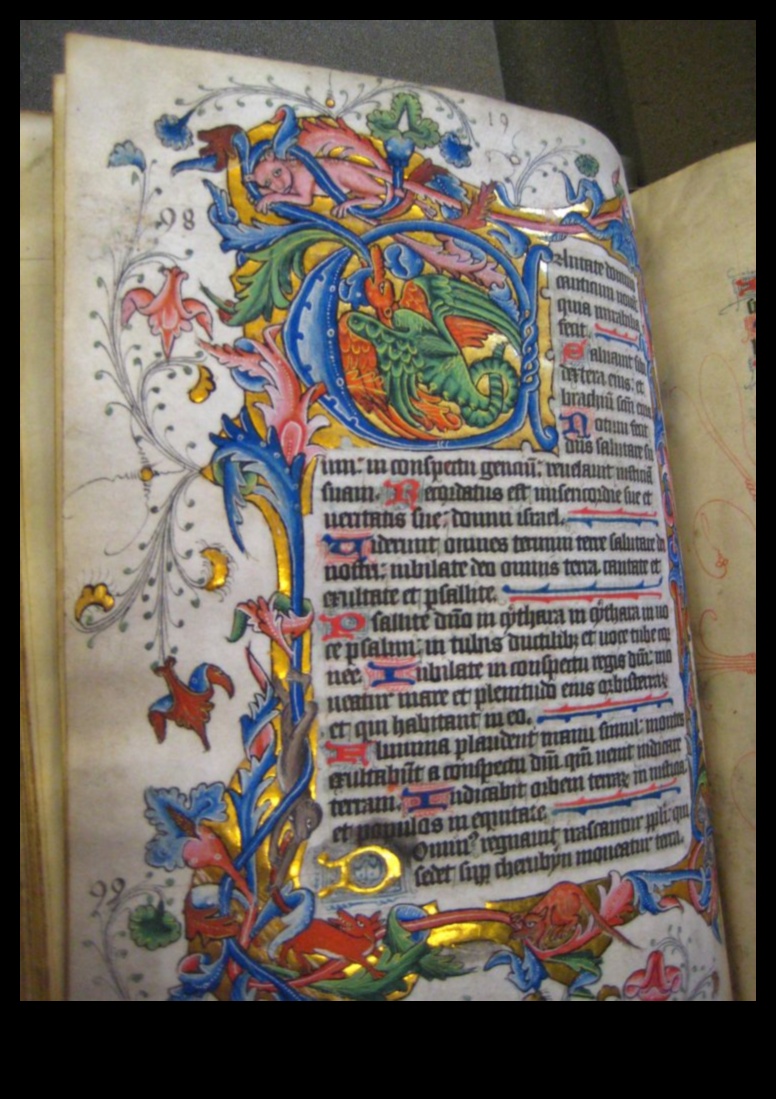 19
98
C antate domino
canticum nouū
quia mirabilia
fecit.
Saluauit sibi
dextera eius: et
brachiū scm̄ eius
Notum fecit
dn̄s salutare su
um: in conspectu genciū: reuelauit iusticiā
suam. Recordatus est misericordie sue et
ueritatis sue: domui israel.
Uiderunt omnes termini terre salutare di
nostri: iubilate deo omnis terra cantate et
exultate et psallite.
Psallite dn̄o in cythara in cythara in uo
ce psalmi: in tubis ductilib; et uoce tube cor
nee. Iubilate in conspectu regis dn̄i: mo
ueatur mare et plenitudo eius orbis terrar̄
et qui habitant in eo.
Flumina plaudent manu simul: montes
exultabūt a conspectu dn̄i qm̄ uenit iudicare
terram. Iudicabit orbem terrar̄ in iusticia
et populos in equitate.
99
Domin9 regnauit irascantur ppl̄i: qui
sedet sup cherubyn moueatur terra.